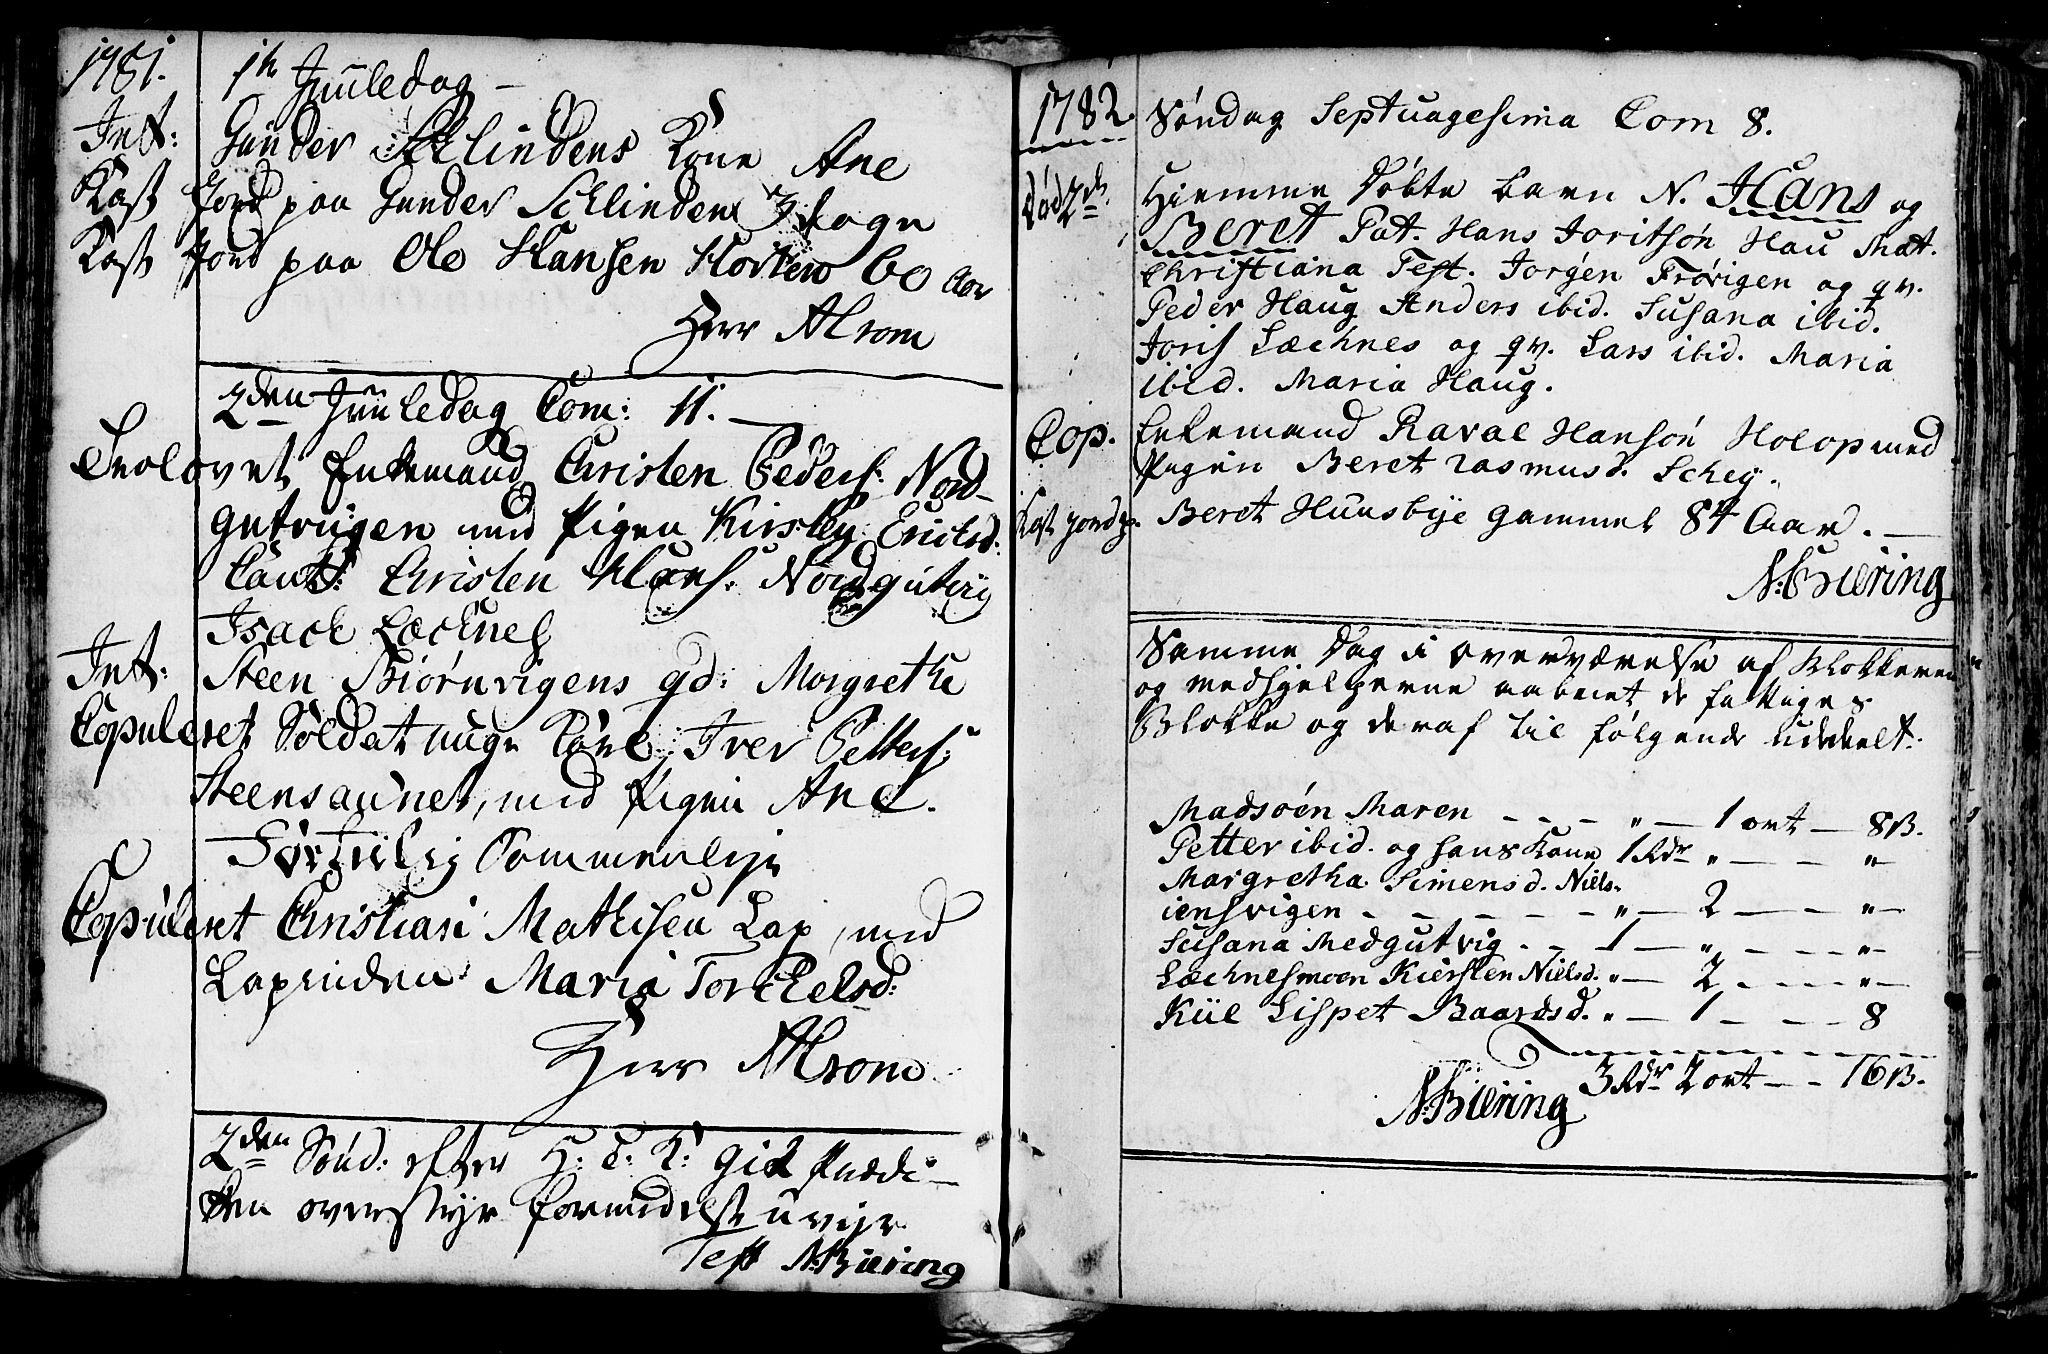 1781.
1te Juuledag –
Int: Gunder Schlindens Kone Ane
Kast Jord paa Gunder Schlinden 3 dage
Kast Jord paa Ole Hansen 60 Aar
Herr Alrom
2den Juuledag Com: 11. –
Trolovet Enkemand Christen Peders: Nord-
gutvigen med Pigen Kirsten Ericksd:
Caut: Christen Hans: Nordgutvig
Isack Lechnes
Int: Steen Biørnvigens qv: Morgrethe
Copuleret Soldat unge Karl Iver Petters:
Steensaunet, med Pigen Ane
Sommerlyst
Copuleret Christian Mathisen Lap, med
Lapqvinden Maria Torchelsd:
Herr Alrom
2den Sønd: efter H: 3: K: gik Prædi-
ken overstyr formedelst uvejr
Test N: Biering
1782. Søndag Septuagesima Com 8.
Død 2de Hiemme Døbte barn N. Hans og
Beret Pat. Hans Joritsøn Hau Mat.
Christiana Test. Jorgen Frøvigen og qv.
Peder Haug Anders ibid. Susana ibid.
Joris Lechnes og qv. Lars ibid. Maria
ibid. Maria Haug.
Cop. Enkemand Raval Hansøn Holop med
Pigen Beret Rasmusd. Schey.
Kast Jord p. Beret Huusbye gammel 84 Aar. –
N: Biering
Samme Dag i overværelse af Klokkeren
og medhjelperne aabnet de fattiges
Blokke og deraf til følgende uddeelt:
Madsøen Maren – – – „ – 1 ort – 8 ß.
Petter ibid. og hans Kone 1 Rdr „ – – – „
Margretha Simensd. Niels-
iensvigen – – – – – „ – 2 – – – „ –
Susana Medgutvig . – 1 – „ – – – „ –
Lechnesmoen Kiersten Nielsd. „ – 2 – – – „ –
Kiil Lispet Baardsd. „ – 1 – – – 8
3 Rdr 2 ort – – 16 ß.
N: Biering